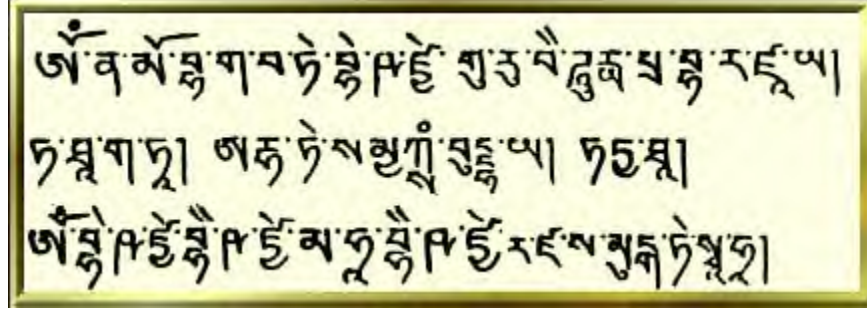 ཨོཾ་ན་མོ་བྷ་ག་བ་ཏེ་བྷེ་ཥ་ཛྱེ་ གུ་རུ་བཻ་ཌཱུརྱ་པྲ་བྷ་ར་ཛཱ་ཡ།
ཏ་ཐཱ་ག་ཏཱ། ཨརྷ་ཏེ་སམྱཀྶཾ་བུདྡྷཱ་ཡ། ཏདྱ་ཐཱ།
ཨོཾ་བྷེ་ཥ་ཛྱེ་བྷཻ་ཥ་ཛྱེ་མ་ཧཱ་བྷཻ་ཥ་ཛྱེ་ར་ཛ་ས་མུདྒ་ཏེ་སྭཱ་ཧཱ།